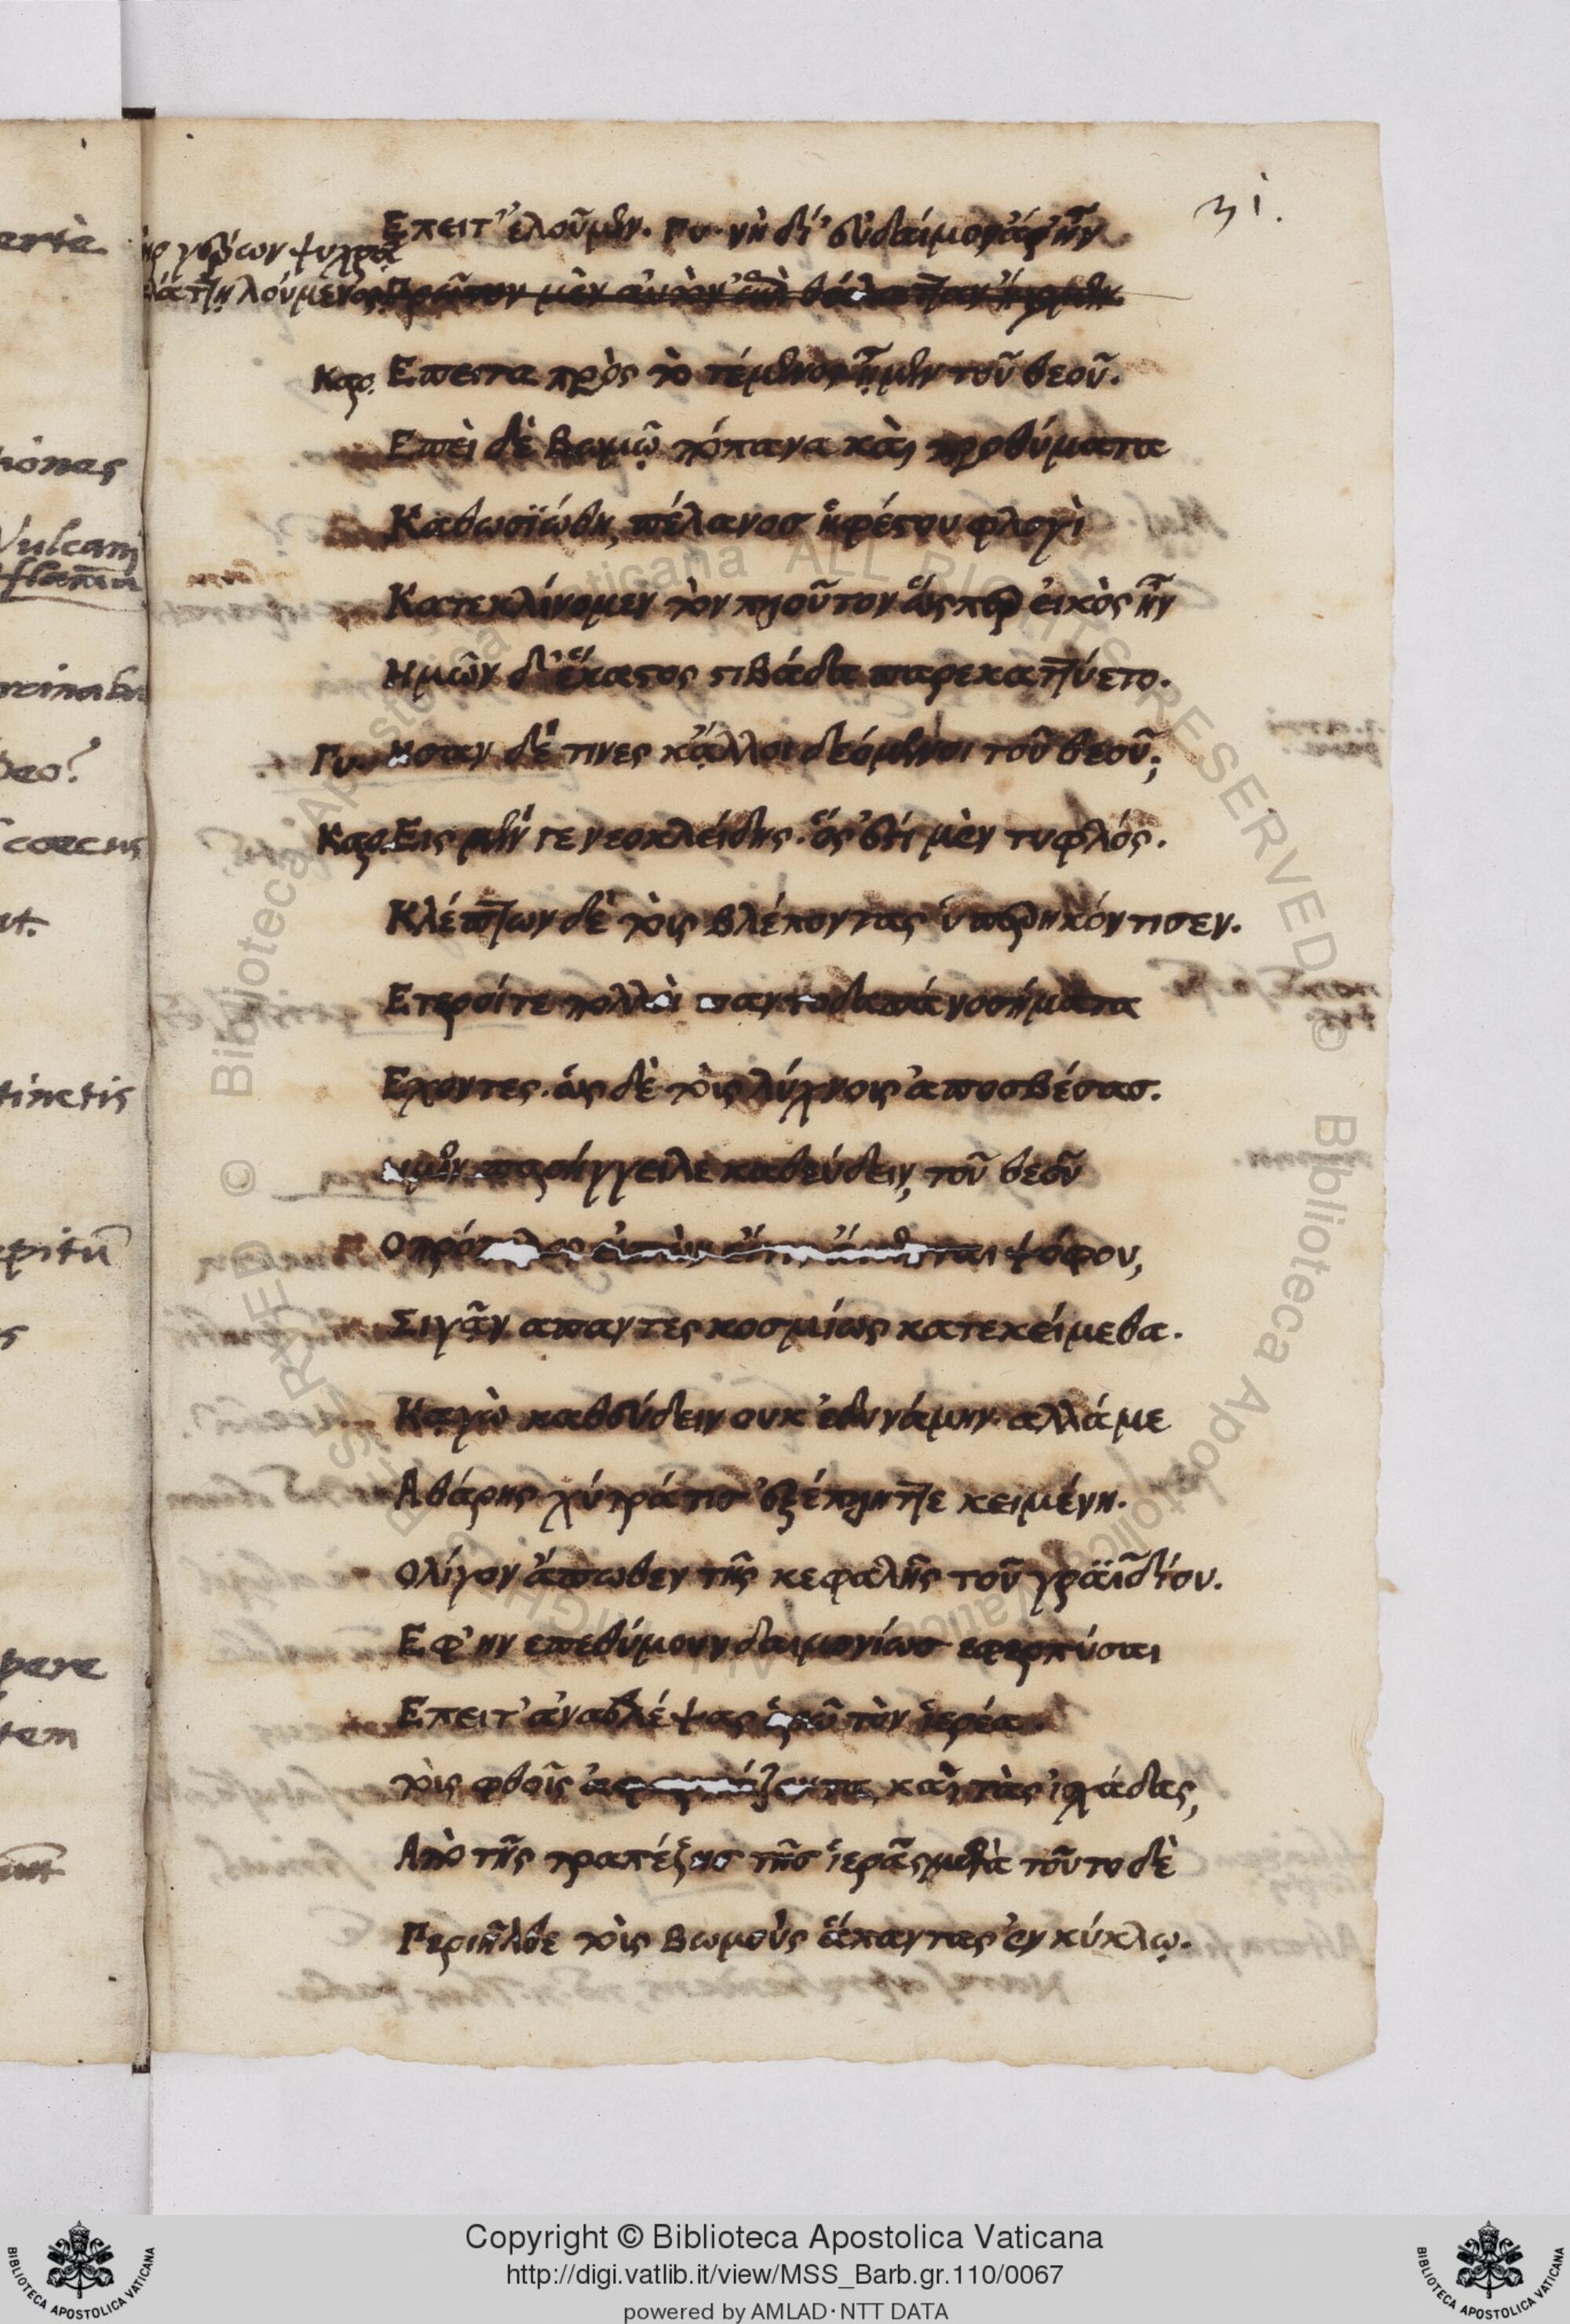 31.
Επειτ' ἐλοῦμεν. Γυ. νὴ δί' εὐδαίμον' ἄρ' ἦν
ἀνὴρ γέρων ψυχρᾷ
θαλάττῃ λούμενος.
Καρ. Επειτα πρὸς τὸ τέμενος ᾖμεν τοῦ θεοῦ.
Επεὶ δὲ βωμῷ πόπανα καὶ προθύματα
Καθωσϊώθη, πέλανοσ ἡφέστου φλογὶ
Κατεκλίνομεν τὸν πλοῦτον ὥςπερ εἰκὸς ἦν
Ημῶν δ' ἕκαστος στιβάδα παρεκαττύετο.
Γυ. Ησαν δέ τινες κᾄλλοι δεόμενοι τοῦ θεοῦ;
Καρ. Εις μέν γε νεοκλείδης. ὅς ἐστί μὲν τυφλός.
Κλέπτων δὲ τοὺς βλέποντας ὑπερηκόντισεν.
Ετεροίτε πολλοὶ παντοδαπὰ νοσήματα
Εχοντες. ὡς δὲ τοὺς λύχνους ἀποσβέσασ.
ημῖν παρήγγειλε καθεύδειν, τοῦ θεοῦ
Ο πρό ψόφου,
Σιγᾶν απαντες κοσμίως κατεκείμεθα.
Κᾀγὼ καθεύδειν ουκ ἐδυνάμην. αλλά με
Αθάρης χύτρά τισ ἐξέπληττε κειμένη.
Ολίγον ἄπωθεν τῆς κεφαλῆς τοῦ γραϊδίου.
Εφ' ην επεθύμουν δαιμονίωσ εφερπύσαι
Επειτ' ἀναβλέψας ὁρῶ τὸν ἱερέα.
τοὺς φθοῖς καὶ τὰς ἰσχάδας,
Απὸ τῆς τραπέζησ τῆσ ἱερᾶς, μετὰ τοῦτο δὲ
Περιῆλθε τοὺς βωμοὺς ἅπαντας ἐν κύκλῳ.
Copyright © Biblioteca Apostolica Vaticana
http://digi.vatlib.it/view/MSS_Barb.gr.110/0067
powered by AMLAD·NTT DATA